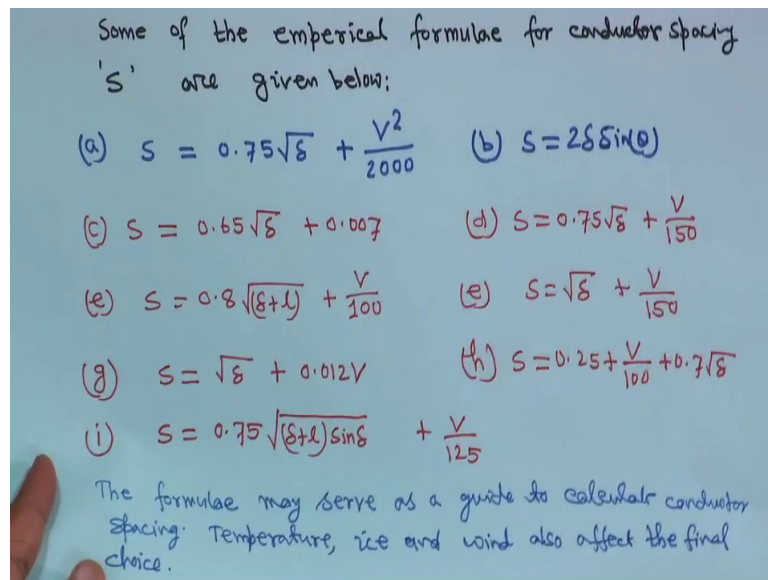 Some of the emperical formulae for conductor spacing
'S' are given below:
(a) S = 0.75√δ + V²/2000 (b) S = 2δ Sin(θ)
(c) S = 0.65√δ + 0.007 (d) S = 0.75√δ + V/150
(e) S = 0.8√(δ+l) + V/100 (e) S = √δ + V/150
(g) S = √δ + 0.012V (h) S = 0.25 + V/100 + 0.7√δ
(i) S = 0.75√(δ+l) Sinδ + V/125
The formulae may serve as a guide to calculate conductor
spacing. Temperature, ice and wind also affect the final
choice.